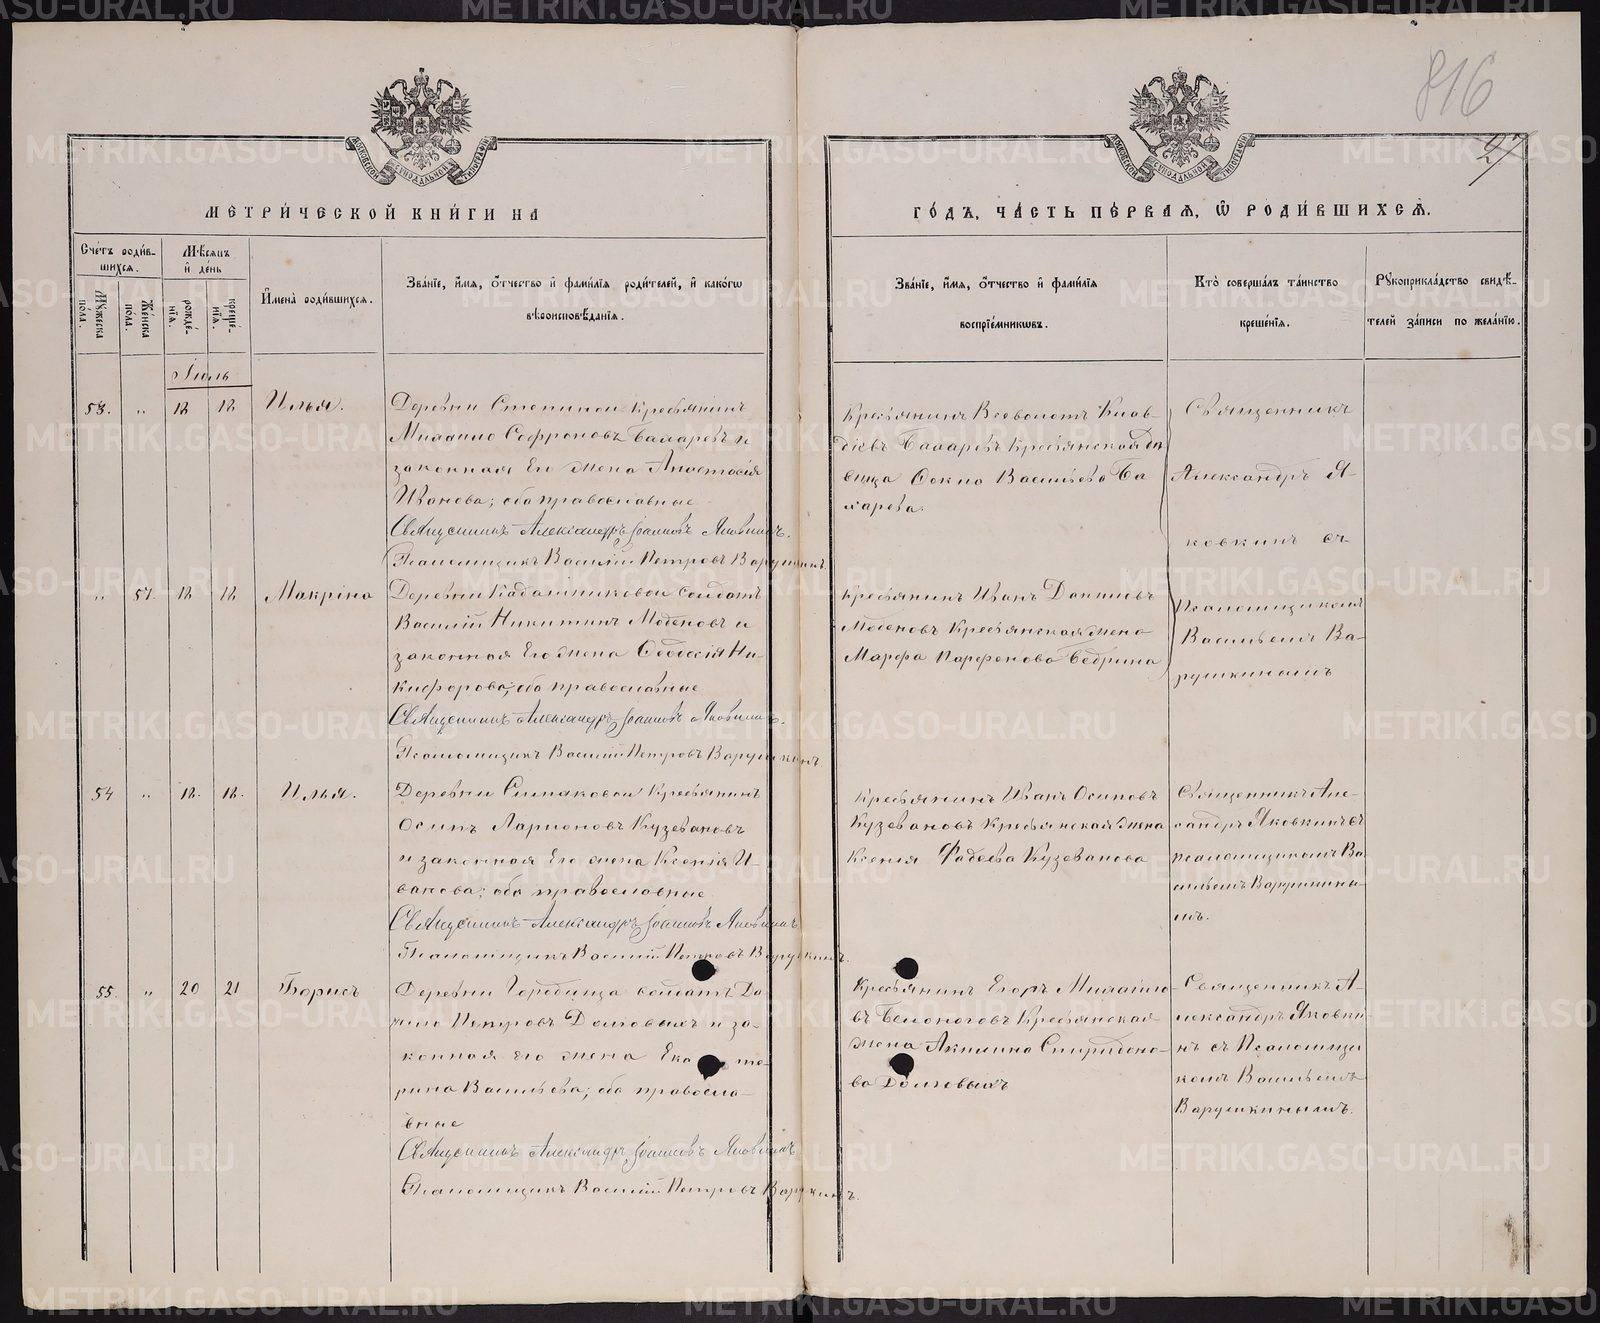 816
27
МЕТРИ́ЧЕСКОЙ КНИ́ГИ НА
ГО́ДЪ, ЧА́СТЬ ПЕ́РВАѦ, Ѡ҆ РОДИ́ВШИХСѦ.
Сче́тъ роди́в-
шихся.
Мꙋжеска по́ла.
Же́нска по́ла.
Мѣ́сяцъ
и҆ де́нь
рожде́-
нїѧ.
креще́-
нїѧ.
И҆мена̀ роди́вшихся.
Зва́нїе, и҆́мѧ, ѻ҆́тчество и҆ фами́лїѧ роди́телей, и҆ како́гѡ
вѣроисповѣ́данїѧ.
Зва́нїе, и҆́мѧ, ѻ҆́тчество и҆ фами́лїѧ
воспрїе́мникѡвъ.
Кто̀ соверша́лъ та́инство
креще́нїѧ.
Рꙋкоприкла́дство свидѣ́-
телей за́писи по жела́нїю.
Іюль
53. „ 18 18 Илья.
Деревни Степиной Крестьянинъ
Михаило Софроновъ Бахаревъ и
законная Его жена Анастасія
Иванова; оба православные
Священникъ Александръ Іоанновъ Яковкинъ.
Псаломщикъ Василій Петровъ Варушкинъ.
Крестьянинъ
Бахаревъ Крестьянская дѣ
вица Васильева Ба
харева.
Священникъ
Александръ Я-
ковкинъ съ
„ 57. 18 18 Макрина
Деревни Кадашниковой солдатъ
Василій Никитинъ Моденовъ и
законная Его жена Ѳеодосія Ни-
кифорова; оба православные
Священникъ Александръ Іоанновъ Яковкинъ.
Псаломщикъ Василій Петровъ Варушкинъ.
Крестьянинъ Иванъ Даниловъ
Моденовъ Крестьянская жена
Марфа Парфенова Бедрина
Псаломщикомъ
Васильемъ Ва-
рушкинымъ
54 „ 18. 18. Илья.
Деревни Симаковой Крестьянинъ
Осипъ Ларионовъ Кузевановъ
и законная Его жена Ксенія И-
ванова; оба православные
Священникъ Александръ Іоанновъ Яковкинъ
Псаломщикъ Василій Петровъ Варушкинъ.
Крестьянинъ Иванъ Осиповъ
Кузевановъ Крестьянская жена
Ксения Фадеева Кузеванова
Священникъ Алек-
сандръ Яковкинъ съ
псаломщикомъ Ва
сильемъ Варушкины-
мъ.
55. „ 20 21 Борисъ
Деревни Городища солдатъ Да-
нило Петровъ Долговыхъ и за-
конная его жена Екате-
рина Васильева; оба правосла-
вные
Священникъ Александръ Іоанновъ Яковкинъ
Псаломщикъ Василій Петровъ Варушкинъ.
Крестьянинъ Егоръ Михайло-
въ Белоноговъ Крестьянская
жена Акилина Спиридоно-
ва Долговыхъ
Священникъ А-
лександръ Яковки
нъ съ Псаломщи
комъ Васильемъ
Варушкинымъ.